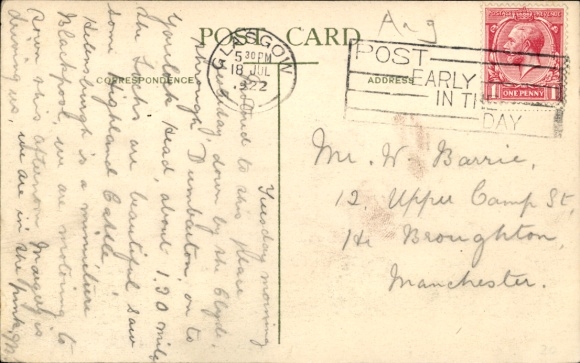 Ang
POST CARD
CORRESPONDENCE
ADDRESS
GLASGOW
5 30 PM
18 JUL
1922
POST
EARLY
IN TH
DAY
POSTAGE REVENUE
1 ONE PENNY 1
Mr. W. Barrie,
12. Upper Camp St,
Hr Broughton,
Manchester.
Tuesday morning
to this place
yesterday, down by the Clyde,
through Dumbarton on to
Head, about 130 mile
the Lochs are beautiful, saw
some Highland Cattle,
Helensburgh is a miniature
Blackpool, we are motoring to
this afternoon, is
driving us, we are in the pink,